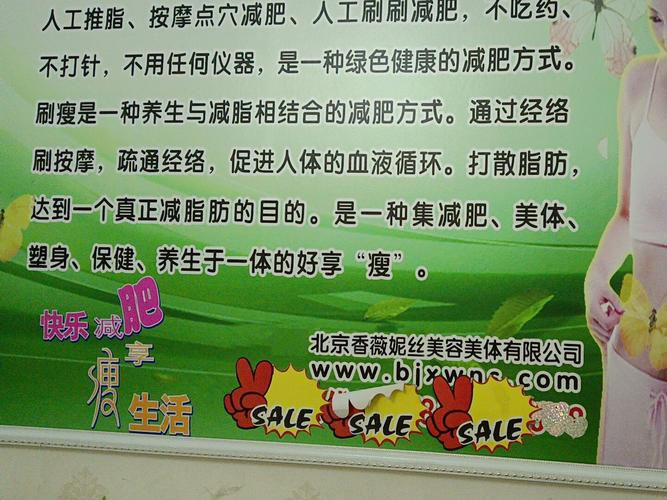 人工推脂、按摩点穴减肥、人工刷刷减肥，不吃约、
不打针，不用任何仪器，是一种绿色健康的减肥方式。
刷瘦是一种养生与减脂相结合的减肥方式。通过经络
刷按摩，疏通经络，促进人体的血液循环。打散脂肪，
达到一个真正减脂肪的目的。是一种集减肥、美体、
塑身、保健、养生于一体的好享“瘦”。
快乐减肥
享
瘦
生活
北京香薇妮丝美容美体有限公司
www.bjxwns.com
SALE
SALE
SALE